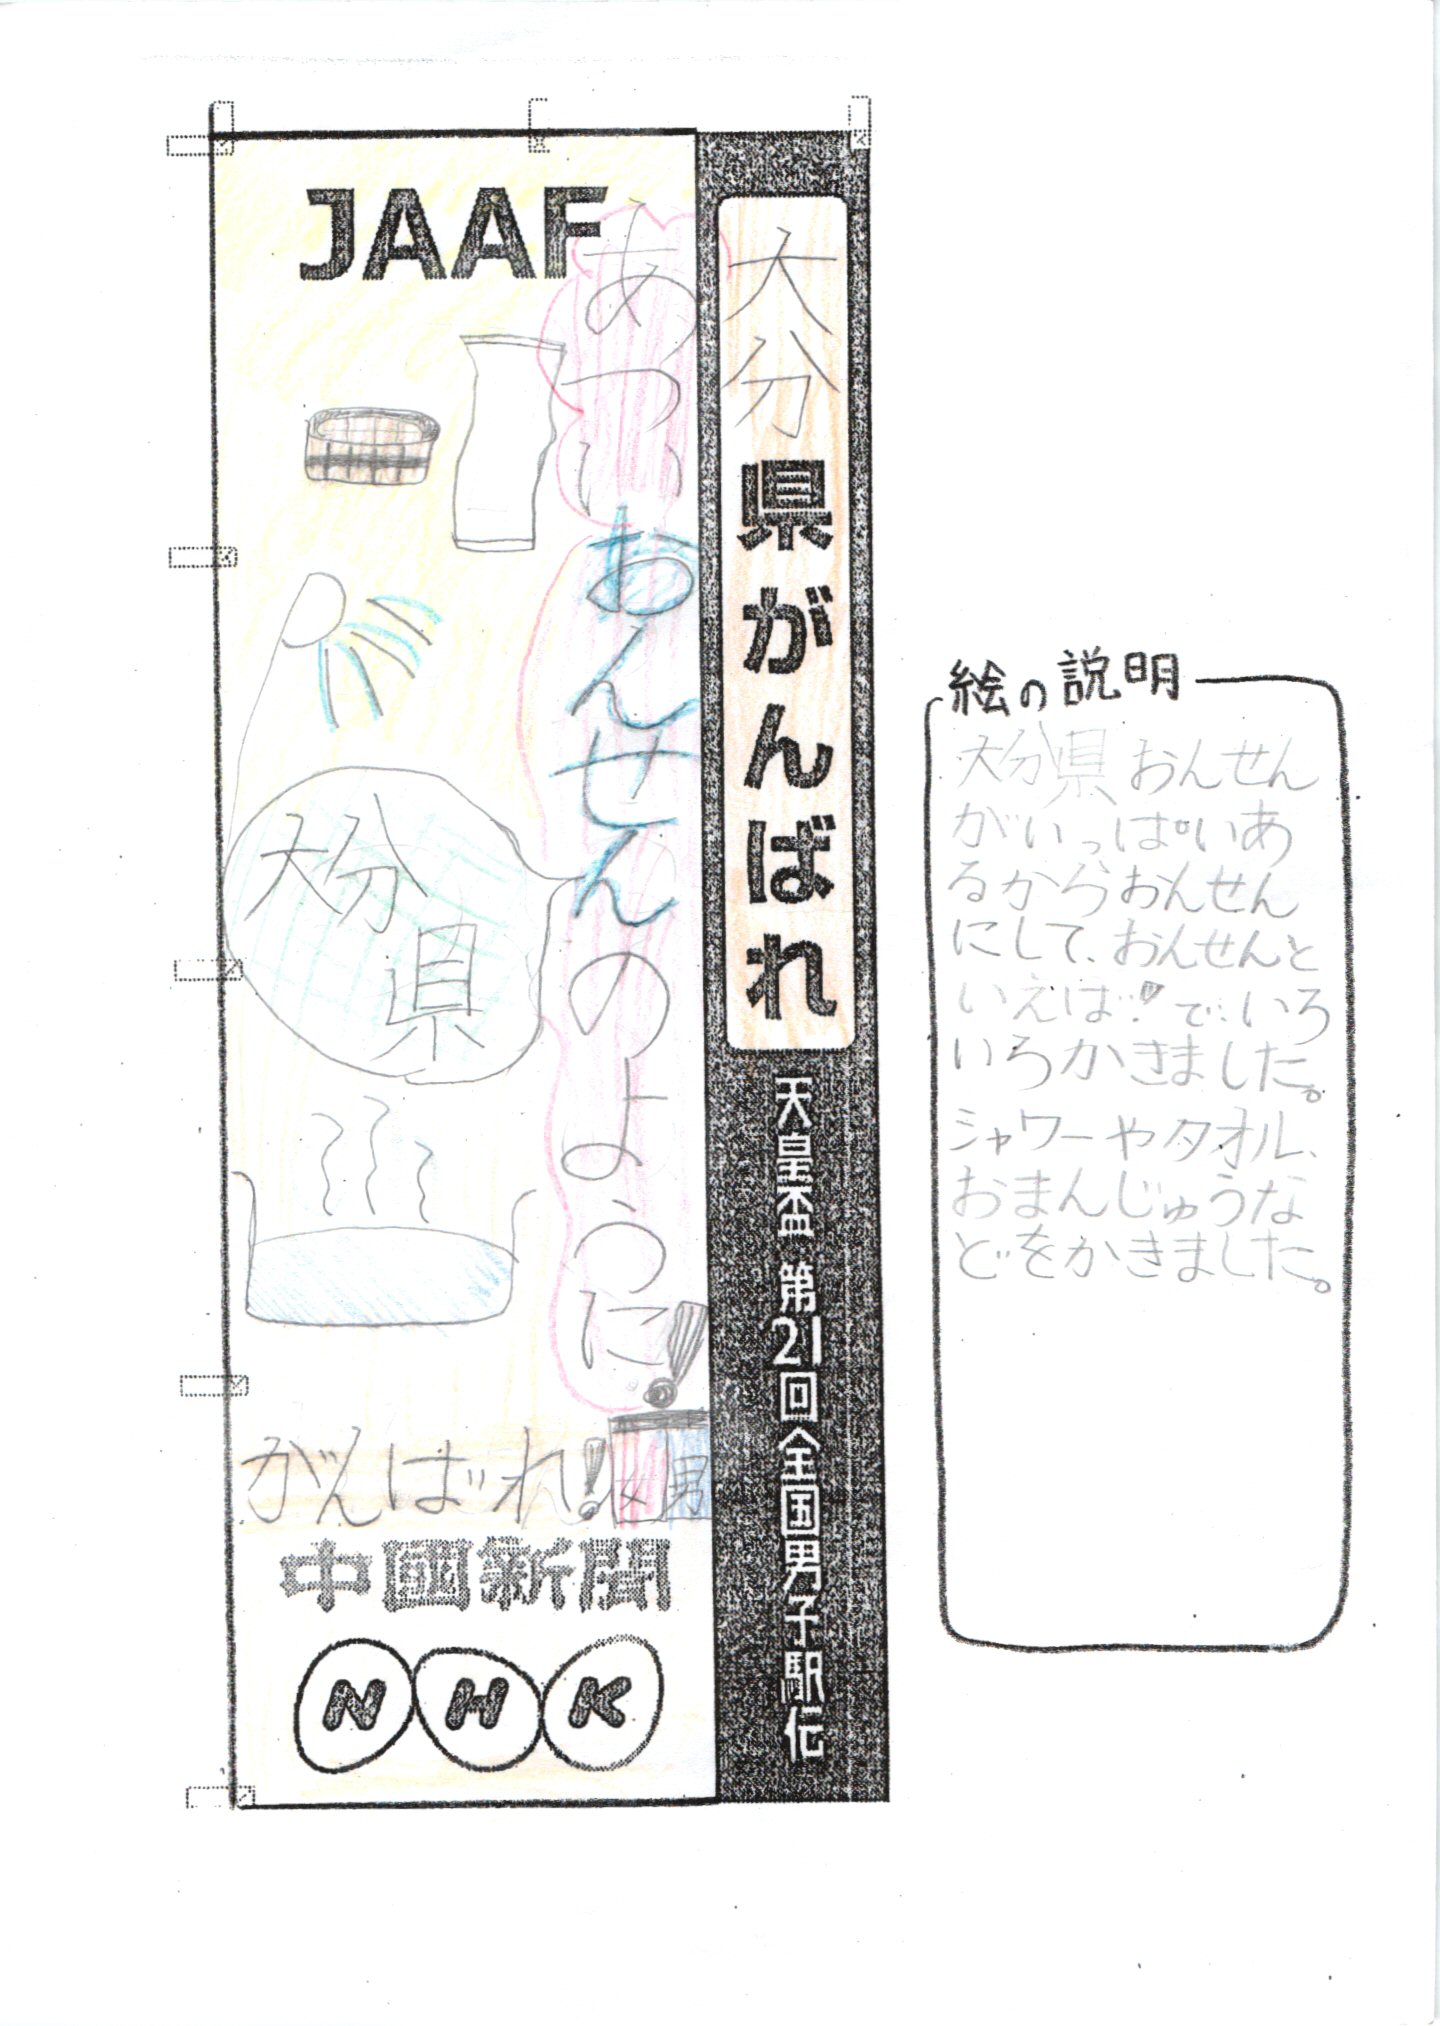 JAAF
大分県がんばれ
天皇盃 第21回全国男子駅伝
あつい
おんせんのように!
大分
県
がんばれ!
女 男
中國新聞
NHK
絵の説明
大分県おんせん
がいっぱいあ
るからおんせん
にして、おんせんと
いえば!でいろ
いろかきました。
シャワーやタオル、
おまんじゅうな
どをかきました。